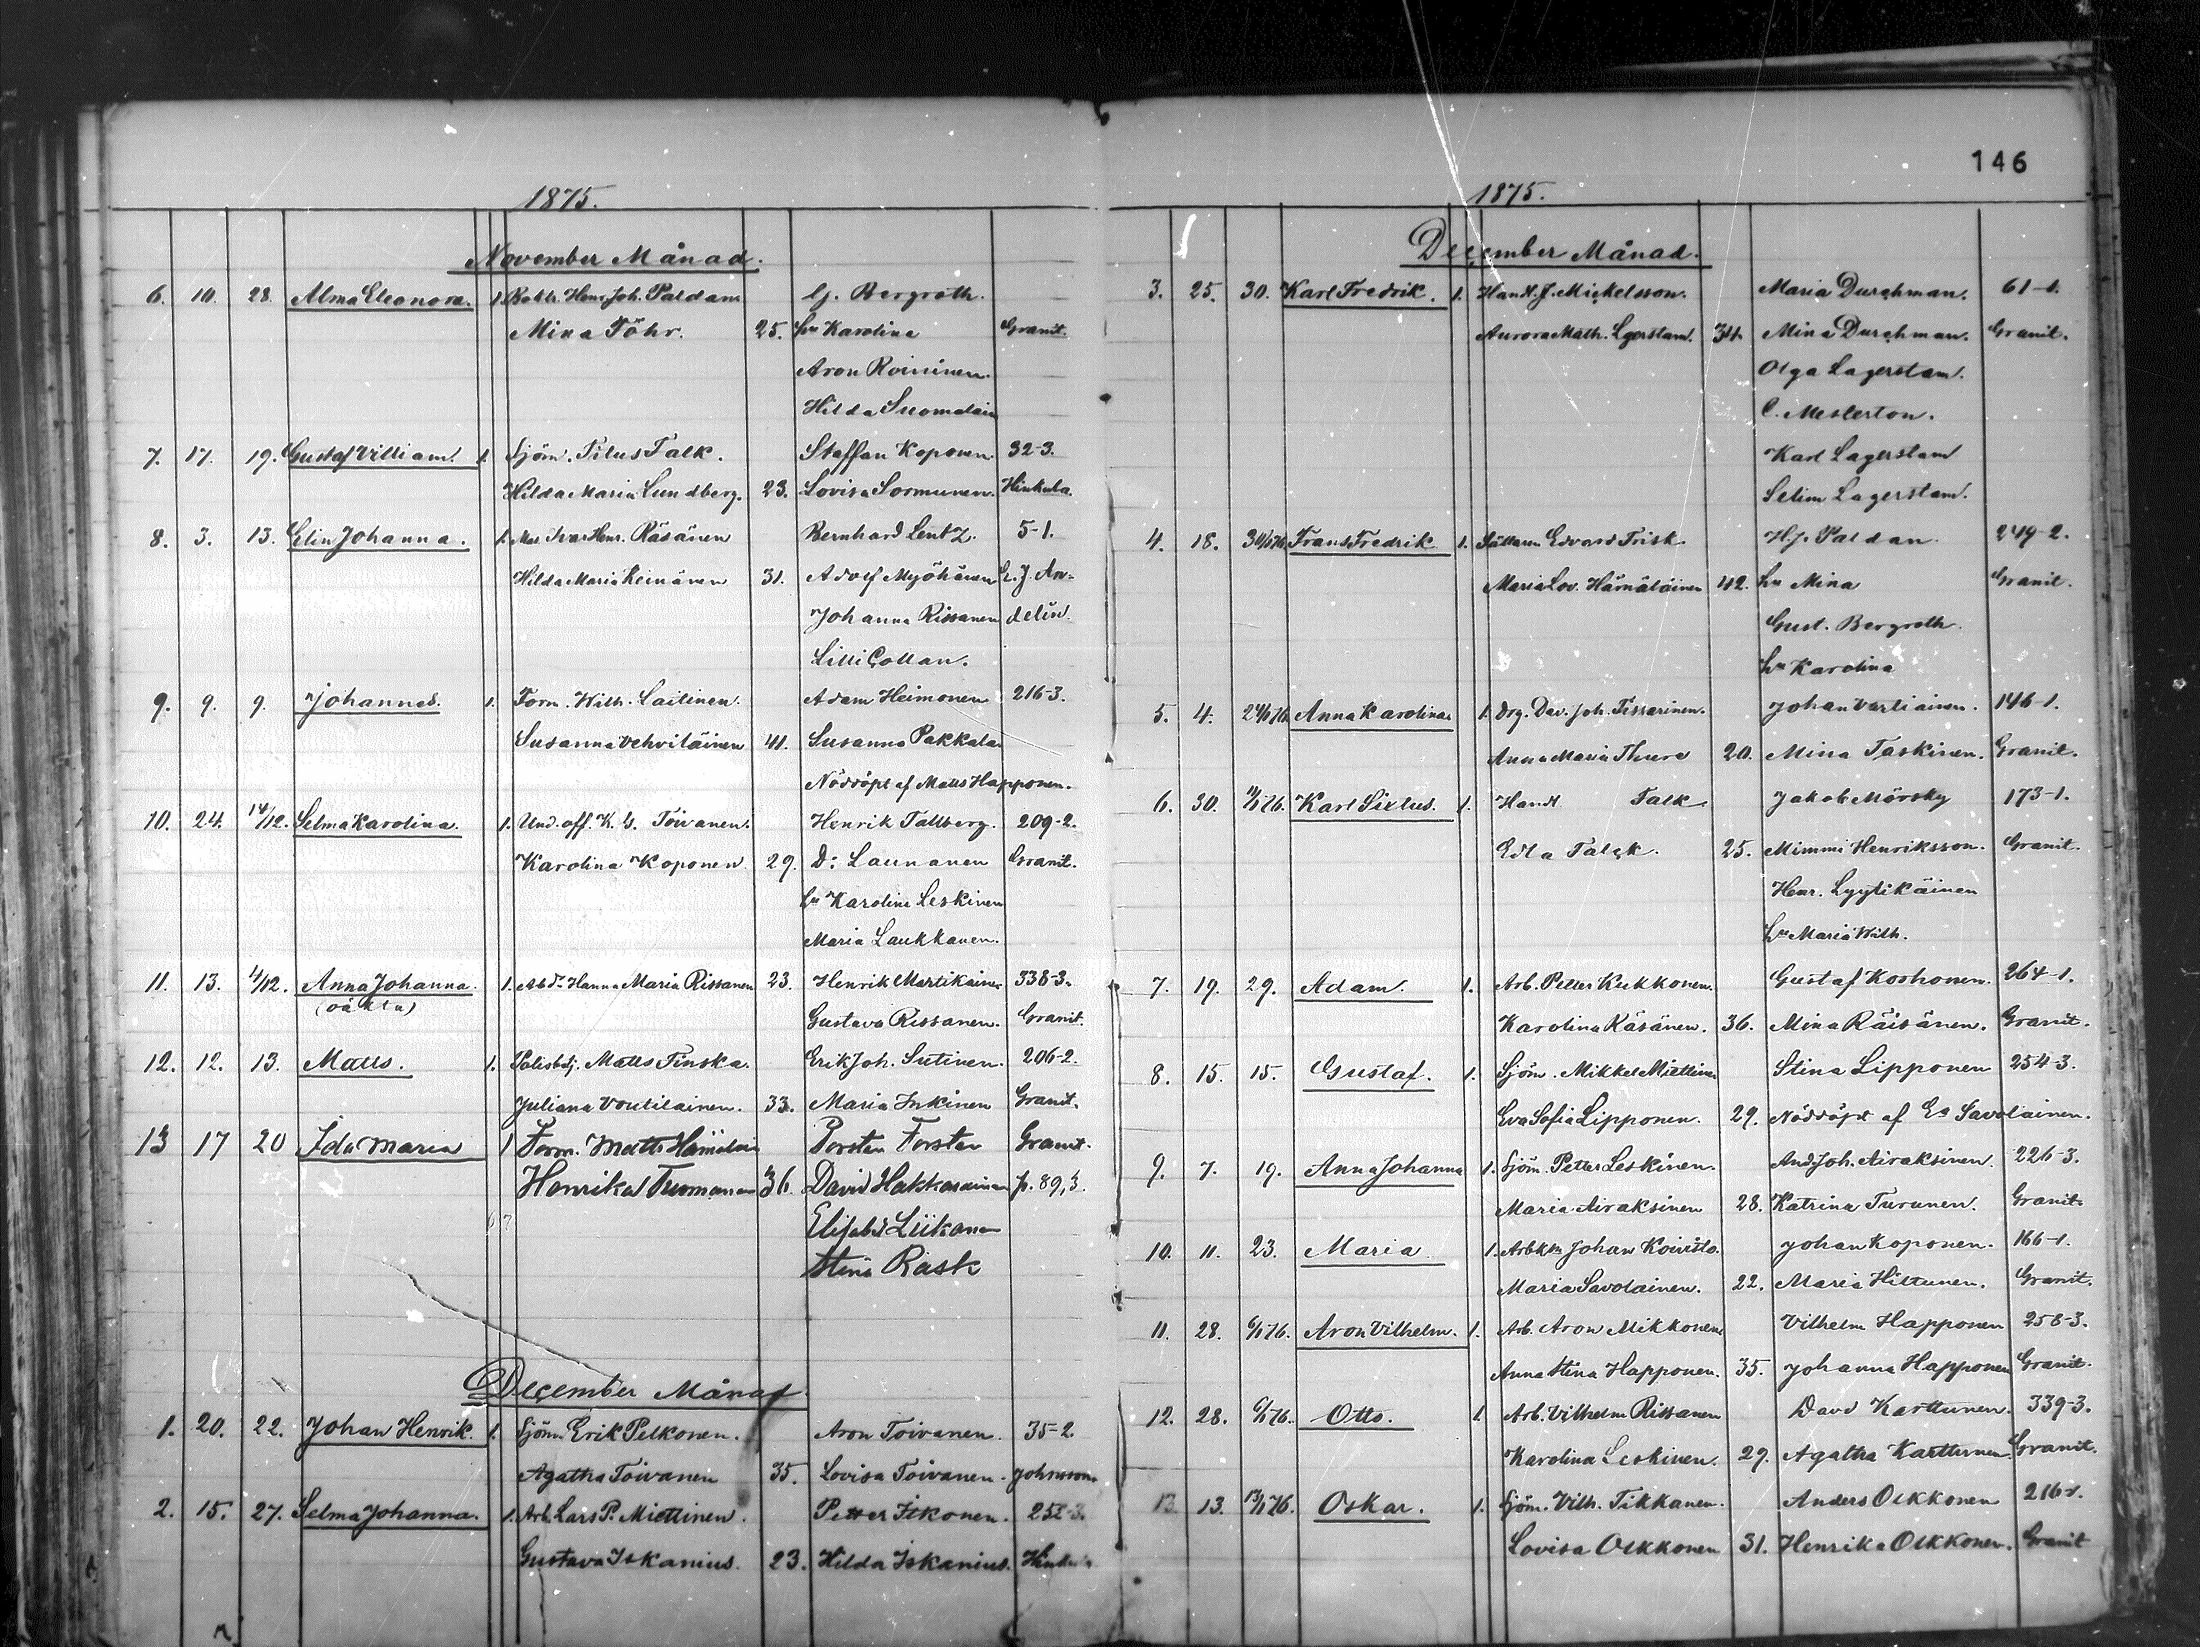 1875.
November Månad.
6. 10. 28. Alma Eleonora. 1. Bokh. Henr. Joh. Paldan G. Bergroth.
Mina Föhr. 25. Hu Karolina Granit.
Aron Roininen.
Hilda Suomalain
7. 17. 19. Gustaf Villiam. 1. Sjöm. Titus Falk. Staffan Koponen 32-3.
Hilda Maria Lundberg. 23. Lovisa Sormunen. Hinkula.
8. 3. 13. Elin Johanna. 1. Ivar Henr. Räsänen Bernhard Lentz. 5-1.
Hilda Maria Leinänen 31. Adolf Myöhänen G. J. An-
Johanna Rissanen delin.
Lilli Collan.
9. 9. 9. Johannes. 1. Form. Wilh. Laitinen. Adam Heimonen 216-3.
Susanna Vehviläinen 41. Susanna Pakkala
Nöddöpt af Matts Happonen.
10. 24. 14/12. Selma Karolina. 1. Und. off. K. G. Toivanen. Henrik Tallberg. 209-2.
Karolina Koponen. 29. D: Launanen Granit.
Hu Karolina Leskinen
Maria Laukkanen.
11. 13. 4/12. Anna Johanna. 1. Hanna Maria Rissanen 23. Henrik Martikainen 338-3.
(oäkta) Gustava Rissanen. Granit.
12. 12. 13. Matts. 1. Polisbetj. Matts Finska. Erik Joh. Sutinen. 206-2.
Juliana Voutilainen. 33. Maria Inkinen Granit.
13 17 20 Ida Maria 1 Form. Matts Hämäläin Torsten Forsten Granit.
Henrika Tuomanen 36. David Hakkarainen p. 89,3.
Elisabet Liikanen
Stina Rask
December Månad
1. 20. 22. Johan Henrik. 1. Sjöm Erik Pelkonen. Aron Toivanen. 35-2
Agatha Toivanen 35. Lovisa Toivanen. Johnsson
2. 15. 27. Selma Johanna. 1. Arb. Lars P. Miettinen. Petter Itkonen. 252-3.
Gustava Iskanius. 23. Hilda Iskanius.
146
1875.
December Månad.
3. 25. 30. Karl Fredrik. 1. Handl. J. Mickelsson. Maria Durchman. 61-1.
Aurora Math. Lgerstam. 34. Mina Durchman. Granit.
Olga Lagerstam.
C. Mesterton.
Karl Lagerstam
Selim Lagerstam.
4. 18. Frans Fredrik 1. Edvard Frisk H. J. Paldan. 249-2.
Maria Lov. Hämäläinen 42. Hu Mina Granit.
Gust. Bergroth.
Hu Karolina
5. 4. Anna Karolina 1. Drg. Dav. Joh. Tissarinen. Johan Vartiainen. 146-1.
Anna Maria Thure 20. Mina Taskinen. Granit.
6. 30. Karl Sixtus. 1. Handl Falk Jakob Mörsky 173-1.
Edla Falck. 25. Mimmi Henriksson. Granit.
Henr. Lyytikäinen
Hu Maria Wilh.
7. 19. 29. Adam. 1. Arb. Petter Kukkonen. Gustaf Korhonen. 264-1.
Karolina Räsänen. 36. Mina Räisänen. Granit.
8. 15. 15. Gustaf. 1. Sjöm. Mikkel Miettinen Stina Lipponen 254-3.
Eva Sofia Lipponen. 29. Nöddöpt af Es Savolainen.
9. 7. 19. Anna Johanna 1. Sjöm. Petter Leskinen. And. Joh. Airaksinen. 226-3.
Maria Airaksinen 28. Katrina Turunen. Granit.
10. 11. 23. Maria 1. Arbkn Johan Koivisto. Johan Koponen. 166-1.
Maria Savolainen. 22. Maria Hiltunen. Granit.
11. 28. 6/1 76. Aron Vilhelm. 1. Arb. Aron Mikkonen Vilhelm Happonen 258-3.
Anna Stina Happonen. 35. Johanna Happonen Granit.
12. 28. 6/1 76. Otto. 1. Arb. Vilhelm Rissanen David Karttunen. 339-3.
Karolina Leskinen. 29. Agatha Karttunen Granit.
13. 13. 13/1 76. Oskar. 1. Sjöm. Vilh. Tikkanen. Anders Olkkonen 216-1.
Lovisa Olkkonen 31. Henrika Olkkonen. Granit